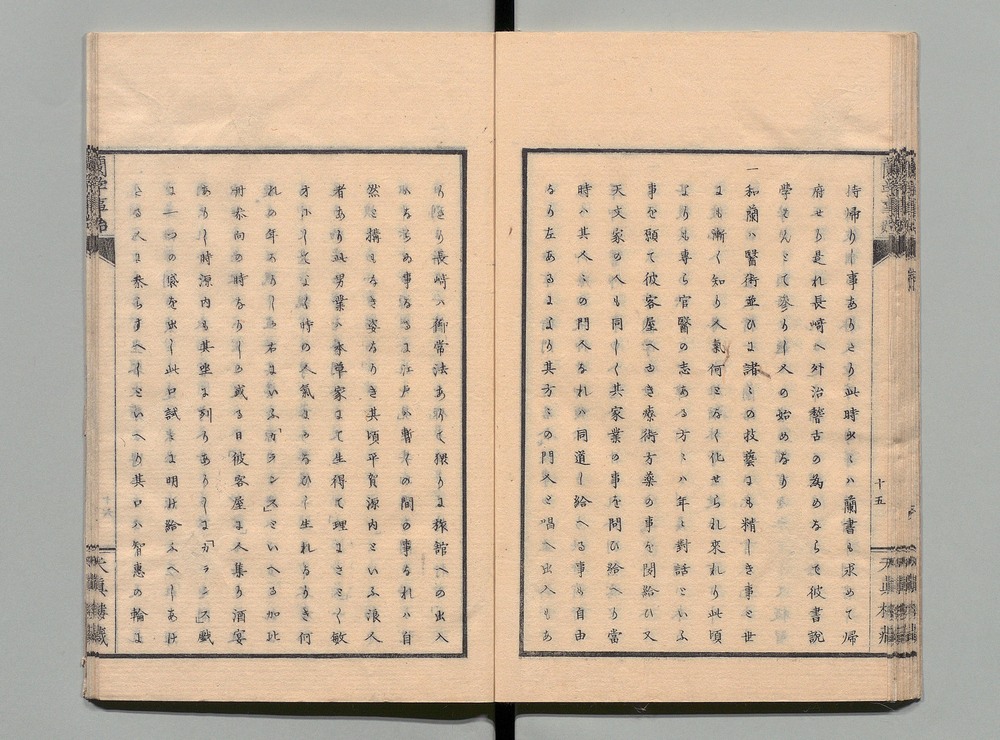 持帰りし事ありとなり此時ハ蘭書も求めて帰
府せり是れ長崎へ外治稽古の為めならて彼書説
學せんとて参りし人の始めなり
一和蘭ハ醫術並ひに諸々の技藝にも精しき事と世
にも漸く知り人氣何となく化せられ来れり此頃
よりも専ら官醫の志ある方々ハ年々對話といふ
事を願て彼客屋へゆき療術方藥の事を聞給ひ又
天文家の人も同しく其家業の事を問ひ給へり當
時ハ其人々の門人なれハ同道し給へる事も自由
なり左あるにより其方々の門人と唱へ出入もあ
り長崎ハ御常法ありて猥りに旅舘への出入
ハならぬ事なるに江戸ハ暫くの間の事なれハ自
然と構もなき姿なりき其頃平賀源内といふ浪人
者あり此男業ハ本草家にて生得て理にさとく敏
才にしてよく時の人氣にかなひし生れなりき何
れの年なりしか右にいふ「カランス」といへる加比
丹参向の時なりしか或る日彼客屋に人集り酒宴
ありし時源内も其坐に列りありしに「カランス」戯
に一つの袋を出し此口試に明け給ふへしあけ
たる人に参らすへしといへり其口ハ智恵の輪に
蘭學事始
十五
天眞樓藏
蘭學事始
天眞樓藏